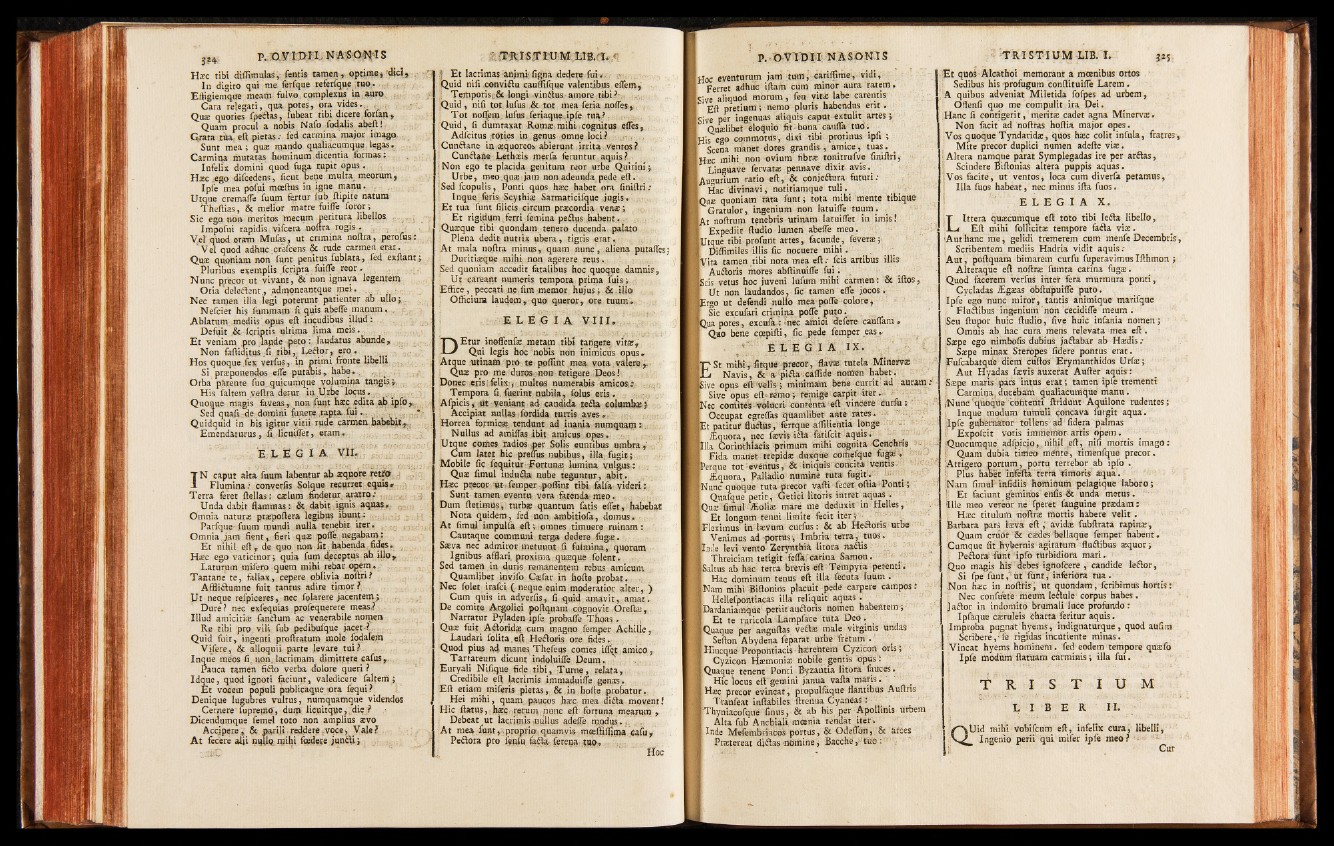 324 P. OVIDII NASONIS
Hæc tibi dissimulas, sentis tamen, optime, dici,
In digito qui me fersque refersque tuo.
Effigiemque meam fulvo complexus in auro
Cara relegati, qua potes, ora vides.
Quæ quoties spectas, subeat tibi dicere forsan,
Quam procul a nobis Naso sodalis abest!
Grata tua est pietas: sed carmina major imago
Sunt mea; quæ mando qualiacumque legas.
Carmina mutatas hominum dicentia formas:
Infelix domini quod fuga rupit opus.
Hæc ego discedens, sicut bene multa meorum,
Ipse mea posui mœstus in igne manu.
Utque cremasse suum fertur sub stipite natum
Thestias, & melior matre fuisse soror;
Sic ego non meritos mecum peritura libellos
Imposui rapidis viscera nostra rogis.
Vel quod eram Musas, ut crimina nostra, perosus:
Vel quod adhuc crescens & rude carmen erat.
Quæ quoniam non sunt penitus sublata, sed exstant;
Pluribus exemplis scripta fuisse reor.
Nunc precor ut vivant, & non ignava legentem
Otia delectent, admoneantque mei.
Nec tamen illa legi poterunt patienter ab ullo;
Nesciet his summam si quis abesse manum.
Ablatum mediis opus est incudibus illud:
Defuit & scriptis ultima lima meis.
Et veniam pro laude peto: laudatus abunde,
Non fastiditus si tibi, Lector, ero.
Hos quoque sex versus, in primi fronte libelli
Si præponendos esse putabis, habe.
Orba parente suo quicumque volumina tangis;
His saltem vestra detur in Urbe locus.
Quoque magis faveas, non sunt hæc edita ab ipso,
Sed quasi de domini funere rapta sui.
Quidquid in his igitur vitii rude carmen habebit,
Emendaturus, si licuisset, eram.
ELEGIA VII.
IN caput alta suum labentur ab æquore retro
Flumina: conversis Solque recurret equis.
Terra feret stellas: cælum findetur aratro:
Unda dabit flammas: & dabit ignis aquas.
Omnia naturæ præpostera legibus ibunt:
Parsque suum mundi nulla tenebit iter.
Omnia jam fient, fieri quæ posse negabam:
Et nihil est, de quo non sit habenda fides.
Hæc ego vaticinor; quia sum deceptus ab illo,
Laturum misero quem mihi rebar opem.
Tantane te, fallax, cepere oblivia nostri?
Afflictumne fuit tantus adire timor?
Ut neque respiceres, nec solarere jacentem;
Dure? nec exsequias prosequerere meas?
Illud amicitiæ sanctum ac venerabile nomen
Re tibi pro vili sub pedibusque jacet?
Quid fuit, ingenti prostratum mole sodalem
Visere, & alloquii parte levare tui?
Inque meos si non lacrimam dimittere casus,
Pauca tamen ficto verba dolore queri?
Idque, quod ignoti faciunt, valedicere saltem;
Et vocem populi publicaque ora sequi?
Denique lugubres vultus, numquamque videndos
Cernere supremo, dum licuitque, die?
Dicendumque semel toto non amplius ævo
Accipere, & parili reddere voce, Vale?
At fecere alii nullo mihi fœdere juncti;
TRISTIUM LIB. I.
Et lacrimas animi signa dedere sui.
Quid nisi convictu caussisque valentibus essem,
Temporis & longi vinctus amore tibi?
Quid, nisi tot lusus & tot mea seria nosses,
Tot nossem lusus seriaque ipse tua?
Quid, si dumtaxat Romæ mihi cognitus esses,
Adscitus toties in genus omne loci?
Cunctane in æquoreos abierunt irrita ventos?
Cunctane Lethæis mersa feruntur aquis?
Non ego te placida genitum reor urbe Quirini;
Urbe, meo quæ jam non adeunda pede est.
Sed scopulis, Ponti quos hæc habet ora sinistri:
Inque feris Scythiæ Sarmaticisque jugis.
Et tua sunt silicis circum præcordia venæ;
Et rigidum ferri semina pectus habent.
Quæque tibi quondam tenero ducenda palato
Plena dedit nutrix ubera, tigris erat.
At mala nostra minus, quam nunc, aliena putasses;
Duritiæque mihi non agerere reus.
Sed quoniam accedit fatalibus hoc quoque damnis,
Ut careant numeris tempora prima suis;
Effice, peccati ne sim memor hujus; & illo
Officium laudem, quo queror, ore tuum.
ELEGIA VIII.
DEtur inoffensæ metam tibi tangere vitæ,
Qui legis hoc nobis non inimicus opus.
Atque utinam pro te possint mea vota valere,
Quæ pro me duros non tetigere Deos!
Donec eris felix, multos numerabis amicos:
Tempora si fuerint nubila, solus eris.
Aspicis, ut veniant ad candida tecta columbæ;
Accipiat nullas sordida turris aves.
Horrea formicæ tendunt ad inania numquam:
Nullus ad amissas ibit amicus opes.
Utque comes radios per Solis euntibus umbra,
Cum latet hic pressus nubibus, illa fugit;
Mobile sic sequitur Fortunæ lumina vulgus:
Quæ simul inducta nube teguntur, abit.
Hæc precor ut semper possint tibi falsa videri:
Sunt tamen eventu vera fatenda meo.
Dum stetimus, turbæ quantum satis esset, habebat
Nota quidem, sed non ambitiosa, domus.
At simul impulsa est; omnes timuere ruinam:
Cautaque communi terga dedere fugæ.
Sæva nec admiror metuunt si fulmina, quorum
Ignibus afflari proxima quæque solent.
Sed tamen in duris remanentem rebus amicum
Quamlibet inviso Cæsar in hoste probat.
Nec solet irasci (neque enim moderatior alter,)
Cum quis in adversis, si quid amavit, amat.
De comite Argolici postquam cognovit Orestæ,
Narratur Pyladen ipse probasse Thoas.
Quæ fuit Actoridæ cum magno semper Achille,
Laudari solita est Hectoris ore fides.
Quod pius ad manes Theseus comes isset amico,
Tartareum dicunt indoluisse Deum.
Euryali Nisique fide tibi, Turne, relata,
Credibile est lacrimis immaduisse genas.
Est etiam miseris pietas, & in hoste probatur.
Hei mihi, quam paucos hæc mea dicta movent!
Hic status, hæc rerum nunc est fortuna mearum,
Debeat ut lacrimis nullus adesse modus.
At mea sunt, proprio quamvis mœstissima casu,
Pectora pro sensu facta serena tuo.
Hoc
P. OVIDII NASONIS
Hoc eventurum jam tum, carissime, vidi,
Ferret adhuc istam cum minor aura ratem.
Sive aliquod morum, seu vitæ labe carentis
Est pretium; nemo pluris habendus erit.
Sive per ingenuas aliquis caput extulit artes;
Quælibet eloquio fit bona caussa tuo.
His ego commotus, dixi tibi protinus ipsi;
Scena manet dotes grandis, amice, tuas.
Hæc mihi non ovium fibræ tonitrusve sinistri,
Linguave servatæ pennave dixit avis.
Augurium ratio est, & conjectura futuri:
Hac divinavi, notitiamque tuli.
Quæ quoniam rata sunt; tota mihi mente tibique
Gratulor, ingenium non latuisse tuum.
At nostrum tenebris utinam latuisset in imis!
Expediit studio lumen abesse meo.
Utque tibi prosunt artes, facunde, severæ;
Dissimiles illis sic nocuere mihi.
Vita tamen tibi nota mea est: scis artibus illis
Auctoris mores abstinuisse sui.
Scis vetus hoc juveni lusum mihi carmen: & istos,
Ut non laudandos, sic tamen esse jocos.
Ergo ut defendi nullo mea posse colore,
Sic excusari crimina posse puto.
Qua potes, excusa: nec amici desere caussam.
Quo bene cœpisti, sic pede semper eas.
ELEGIA IX.
ESt mihi, sitque precor, flavæ tutela Minervæ
Navis, & a picta casside nomen habet.
Sive opus est velis; minimam bene currit ad auram:
Sive opus est remo; remige carpit iter.
Nec comites volucri contenta est vincere cursu:
Occupat egressas quamlibet ante rates.
Et patitur fluctus, fertque assilientia longe
Æquora, nec sævis icta fatiscit aquis.
Illa Corinthiacis primum mihi cognita Cenchris
Fida manet trepidæ duxque comesque fugæ.
Perque tot eventus, & iniquis concita ventis
Æquora, Palladio numine tuta fugit.
Nunc quoque tuta precor vasti secet ostia Ponti;
Quasque petit, Getici litoris intret aquas.
Quæ simul Æoliæ mare me deduxit in Helles,
Et longum tenui limite fecit iter;
Fleximus in lævum cursus: & ab Hectoris urbe
Venimus ad portus, Imbria terra, tuos.
Inde levi vento Zerynthia litora nactis
Threiciam tetigit fessa carina Samon.
Saltus ab hac terra brevis est Tempyra petenti.
Hac dominum tenus est illa secuta suum.
Nam mihi Bistonios placuit pede carpere campos:
Hellespontiacas illa reliquit aquas.
Dardaniamque petiit auctoris nomen habentem;
Et te ruricola Lampsace tuta Deo.
Quaque per angustas vectæ male virginis undas
Seston Abydena separat urbe fretum.
Hincque Propontiacis hærentem Cyzicon oris;
Cyzicon Hæmoniæ nobile gentis opus:
Quaque tenent Ponti Byzantia litora fauces.
Hic locus est gemini janua vasta maris.
Hæc precor evincat, propulsaque flantibus Austris
Transeat instabiles strenua Cyaneas:
Thyniacosque sinus, & ab his per Apollinis urbem
Alta sub Anchiali mœnia tendat iter.
Inde Mesembriacos portus, & Odesson, & arces
Prætereat dictas nomine, Bacche, tuo:
TRISTIUM LIB. I. 325
Et quos Alcathoi memorant a mœnibus ortos
Sedibus his profugum constituisse Larem.
A quibus adveniat Miletida sospes ad urbem,
Offensi quo me compulit ira Dei.
Hanc si contigerit, meritæ cadet agna Minervæ.
Non facit ad nostras hostia major opes.
Vos quoque Tyndaridæ, quos hæc colit insula, fratres,
Mite precor duplici numen adeste viæ.
Altera namque parat Symplegadas ire per arctas,
Scindere Bistonias altera puppis aquas.
Vos facite, ut ventos, loca cum diversa petamus,
Illa suos habeat, nec minus ista suos.
ELEGIA X.
LIttera quæcumque est toto tibi lecta libello,
Est mihi sollicitæ tempore facta viæ.
Aut hanc me, gelidi tremerem cum mense Decembris,
Scribentem mediis Hadria vidit aquis:
Aut, postquam bimarem cursu superavimus Isthmon;
Alteraque est nostræ sumta carina fugæ.
Quod facerem versus inter fera murmura ponti,
Cycladas Ægæas obstupuisse puto.
Ipse ego nunc miror, tantis animique marisque
Fluctibus ingenium non cecidisse meum.
Seu stupor huic studio, sive huic insania nomen;
Omnis ab hac cura mens relevata mea est.
Sæpe ego nimbosis dubius jactabar ab Hædis:
Sæpe minax Steropes sidere pontus erat.
Fuscabatque diem custos Erymanthidos Ursæ;
Aut Hyadas sævis auxerat Auster aquis:
Sæpe maris pars intus erat; tamen ipse trementi
Carmina ducebam qualiacumque manu.
Nunc quoque contenti stridunt Aquilone rudentes;
Inque modum tumuli concava surgit aqua.
Ipse gubernator tollens ad sidera palmas
Exposcit votis immemor artis opem.
Quocumque adspicio, nihil est, nisi mortis imago:
Quam dubia timeo mente, timensque precor.
Attigero portum, portu terrebor ab ipso.
Plus habet infesta terra timoris aqua.
Nam simul insidiis hominum pelagique laboro;
Et faciunt geminos ensis & unda metus.
Ille meo vereor ne speret sanguine prædam:
Hæc titulum nostræ mortis habere velit.
Barbara pars læva est, avidæ substrata rapinæ,
Quam cruor & cædes bellaque semper habent.
Cumque sit hybernis agitatum fluctibus æquor;
Pectora sunt ipso turbidiora mari.
Quo magis his debes ignoscere, candide lector,
Si spe sunt, ut sunt, inferiora tua.
Non hæc in nostris, ut quondam, scribimus hortis:
Nec consuete meum lectule corpus habes.
Jactor in indomito brumali luce profundo:
Ipsaque cæruleis charta feritur aquis.
Improba pugnat hyems, indignaturque, quod ausim
Scribere, se rigidas incutiente minas.
Vincat hyems hominem. sed eodem tempore quæso
Ipse modum statuam carminis; illa sui.
TRISTIUM
LIBER II.
QUid mihi vobiscum est, infelix cura, libelli,
Ingenio perii qui miser ipse meo?
Cur